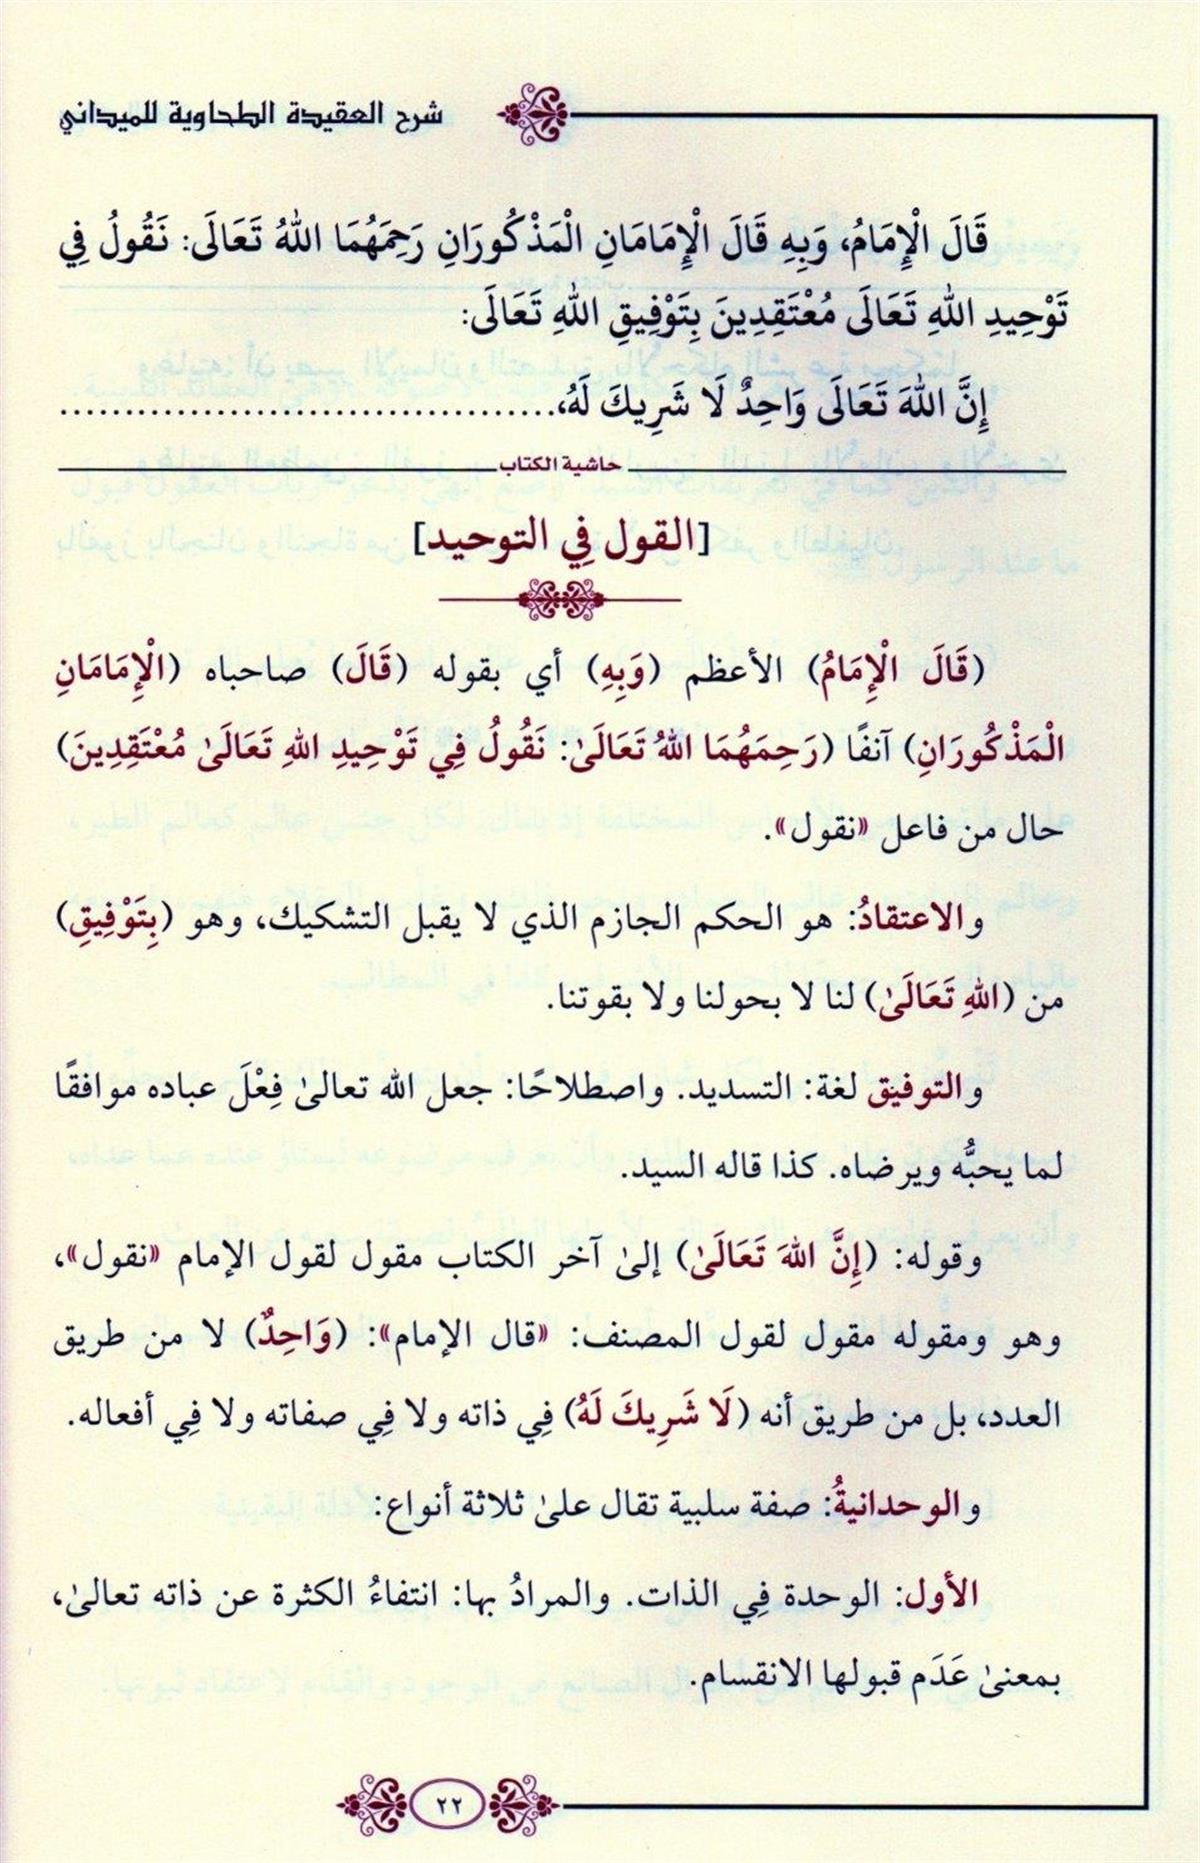 شرح العقيدة الطحاوية للميداني
قَالَ الْإِمَامُ، وَبِهِ قَالَ الْإِمَامَانِ الْمَذْكُورَانِ رَحِمَهُمَا اللهُ تَعَالَى: نَقُولُ فِي
تَوْحِيدِ اللهِ تَعَالَى مُعْتَقِدِينَ بِتَوْفِيقِ اللهِ تَعَالَى:
إِنَّ اللهَ تَعَالَى وَاحِدٌ لَا شَرِيكَ لَهُ،.....................................
حاشية الكتاب
[القول فِي التوحيد]
(قَالَ الْإِمَامُ) الأعظم (وَبِهِ) أي بقوله (قَالَ) صاحباه (الْإِمَامَانِ
الْمَذْكُورَانِ) آنفًا (رَحِمَهُمَا اللهُ تَعَالَىٰ: نَقُولُ فِي تَوْحِيدِ اللهِ تَعَالَىٰ مُعْتَقِدِينَ)
حال من فاعل «نقول».
والاعتقادُ: هو الحكم الجازم الذي لا يقبل التشكيك، وهو (بِتَوْفِيقِ)
من (اللهِ تَعَالَىٰ) لنا لا بحولنا ولا بقوتنا.
والتوفيق لغة: التسديد. واصطلاحًا: جعل الله تعالىٰ فِعْلَ عباده موافقًا
لما يحبُّه ويرضاه. كذا قاله السيد.
وقوله: (إِنَّ اللهَ تَعَالَىٰ) إلىٰ آخر الكتاب مقول لقول الإمام «نقول»،
وهو ومقوله مقول لقول المصنف: «قال الإمام»: (وَاحِدٌ) لا من طريق
العدد، بل من طريق أنه (لَا شَرِيكَ لَهُ) فِي ذاته ولا فِي صفاته ولا فِي أفعاله.
والوحدانيةُ: صفة سلبية تقال علىٰ ثلاثة أنواع:
الأول: الوحدة فِي الذات. والمرادُ بها: انتفاءُ الكثرة عن ذاته تعالىٰ،
بمعنىٰ عَدَم قبولها الانقسام.
٢٢